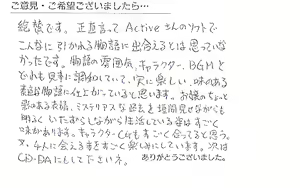 ご意見・ご希望ございましたら…
絶賛です。正直言ってActiveさんのソフトで
こんなに引かれる物語に出会えるとは思っていな
かったです。物語の雰囲気、キャラクター、BGMと
どれも見事に調和していて、実に楽しい、味のある
素敵な物語に仕上がっていると思います。お嬢のちょっと
影はある表情、ミステリアスな過去を垣間見せながらも
明るくいたずらしながら生活している姿はすごく
味があります。キャラクターCVもすごく合ってると思う。
又、4人に会える事をすごく楽しみにしています。次は
CD-DAにもして下さいネ。
ありがとうございました。